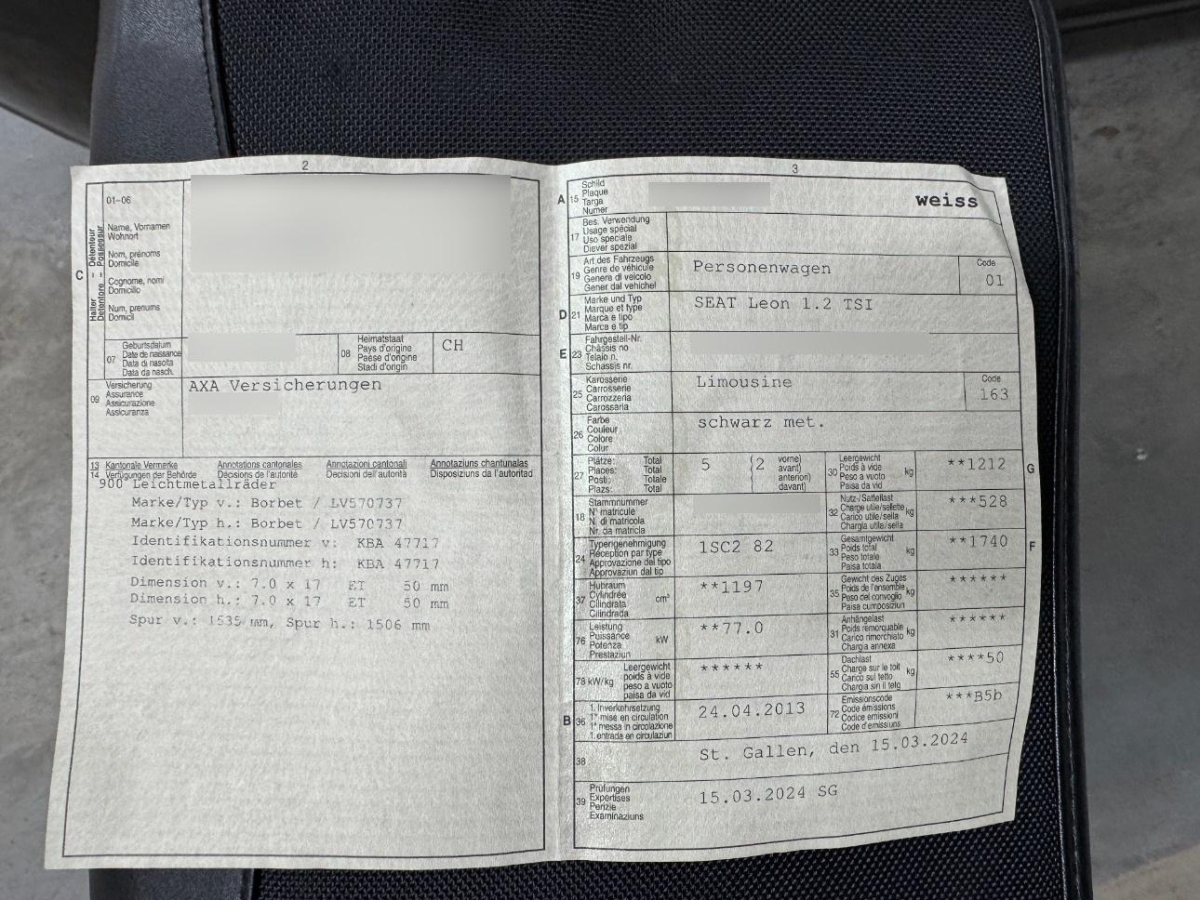 2
01-06
Halter – Détenteur
Detentore – Possessur
C
Name, Vornamen
Wohnort
Nom, prénoms
Domicile
Cognome, nomi
Domicilio
Num, prenums
Domicil
07
Geburtsdatum
Date de naissance
Data di nascita
Data da nasch.
08
Heimatstaat
Pays d'origine
Paese d'origine
Stadi d'origin
CH
09
Versicherung
Assurance
Assicurazione
Assicuranza
AXA Versicherungen
13 Kantonale Vermerke Annotations cantonales Annotazioni cantonali Annotaziuns chantunalas
14 Verfügungen der Behörde Décisions de l'autorité Decisioni dell'autorità Disposiziuns da l'autoritad
900 Leichtmetallräder
Marke/Typ v.: Borbet / LV570737
Marke/Typ h.: Borbet / LV570737
Identifikationsnummer v: KBA 47717
Identifikationsnummer h: KBA 47717
Dimension v.: 7.0 x 17 ET 50 mm
Dimension h.: 7.0 x 17 ET 50 mm
Spur v.: 1535 mm, Spur h.: 1506 mm
3
A 15
Schild
Plaque
Targa
Numer
weiss
17
Bes. Verwendung
Usage spécial
Uso speciale
Diever spezial
19
Art des Fahrzeugs
Genre de véhicule
Genere di veicolo
Gener dal vehichel
Personenwagen
Code
01
D 21
Marke und Typ
Marque et type
Marca e tipo
Marca e tip
SEAT Leon 1.2 TSI
E 23
Fahrgestell-Nr.
Châssis no
Telaio n.
Schassis nr.
25
Karosserie
Carrosserie
Carrozzeria
Carossaria
Limousine
Code
163
26
Farbe
Couleur
Colore
Colur
schwarz met.
27
Plätze: Total
Places: Total
Posti: Totale
Plazs: Total
5
(2
vorne)
avant)
anteriori)
davant)
30
Leergewicht
Poids à vide
Peso a vuoto
Paisa da vid
kg
**1212
G
18
Stammnummer
N° matricule
N. di matricola
Nr. da matricla
32
Nutz-/Sattellast
Charge utile/sellette
Carico utile/sella
Chargia utila/sella
kg
***528
24
Typengenehmigung
Réception par type
Approvazione del tipo
Approvaziun dal tip
1SC2 82
33
Gesamtgewicht
Poids total
Peso totale
Paisa totala
kg
**1740
F
37
Hubraum
Cylindrée
Cilindrata
Cilindrada
cm³
**1197
35
Gewicht des Zuges
Poids de l'ensemble
Peso del convoglio
Paisa cumposiziun
kg
******
76
Leistung
Puissance
Potenza
Prestaziun
kW
**77.0
31
Anhängelast
Poids remorquable
Carico rimorchiato
Chargia annexa
kg
******
78 kW/kg
Leergewicht
poids à vide
peso a vuoto
paisa da vid
******
55
Dachlast
Charge sur le toit
Carico sul tetto
Chargia sin il tetg
kg
****50
B 36
1. Inverkehrsetzung
1ʳᵉ mise en circulation
1ª messa in circolazione
1. entrada en circulaziun
24.04.2013
72
Emissionscode
Code émissions
Codice emissioni
Code d'emissiuns
***B5b
38
St. Gallen, den 15.03.2024
39
Prüfungen
Expertises
Perizie
Examinaziuns
15.03.2024 SG